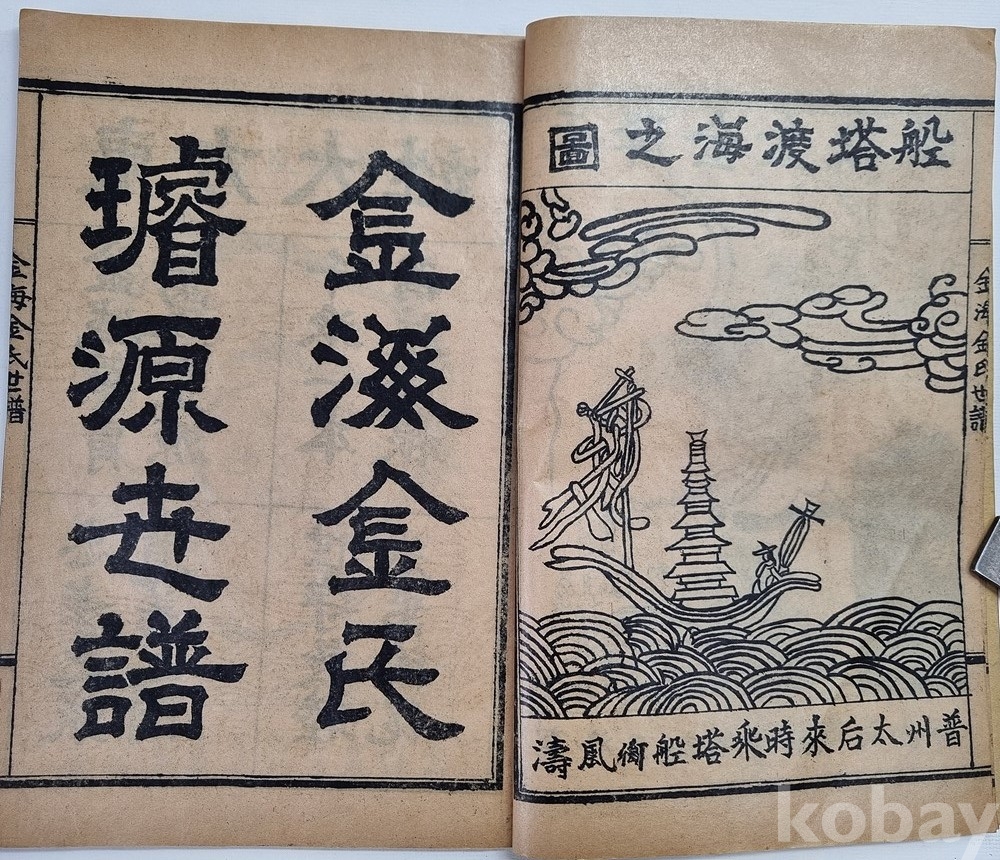 船塔渡海之圖
金海金氏世譜
普州太后來時乘塔船衝風濤
金海金氏
璿源世譜
金海金氏世譜
kobay